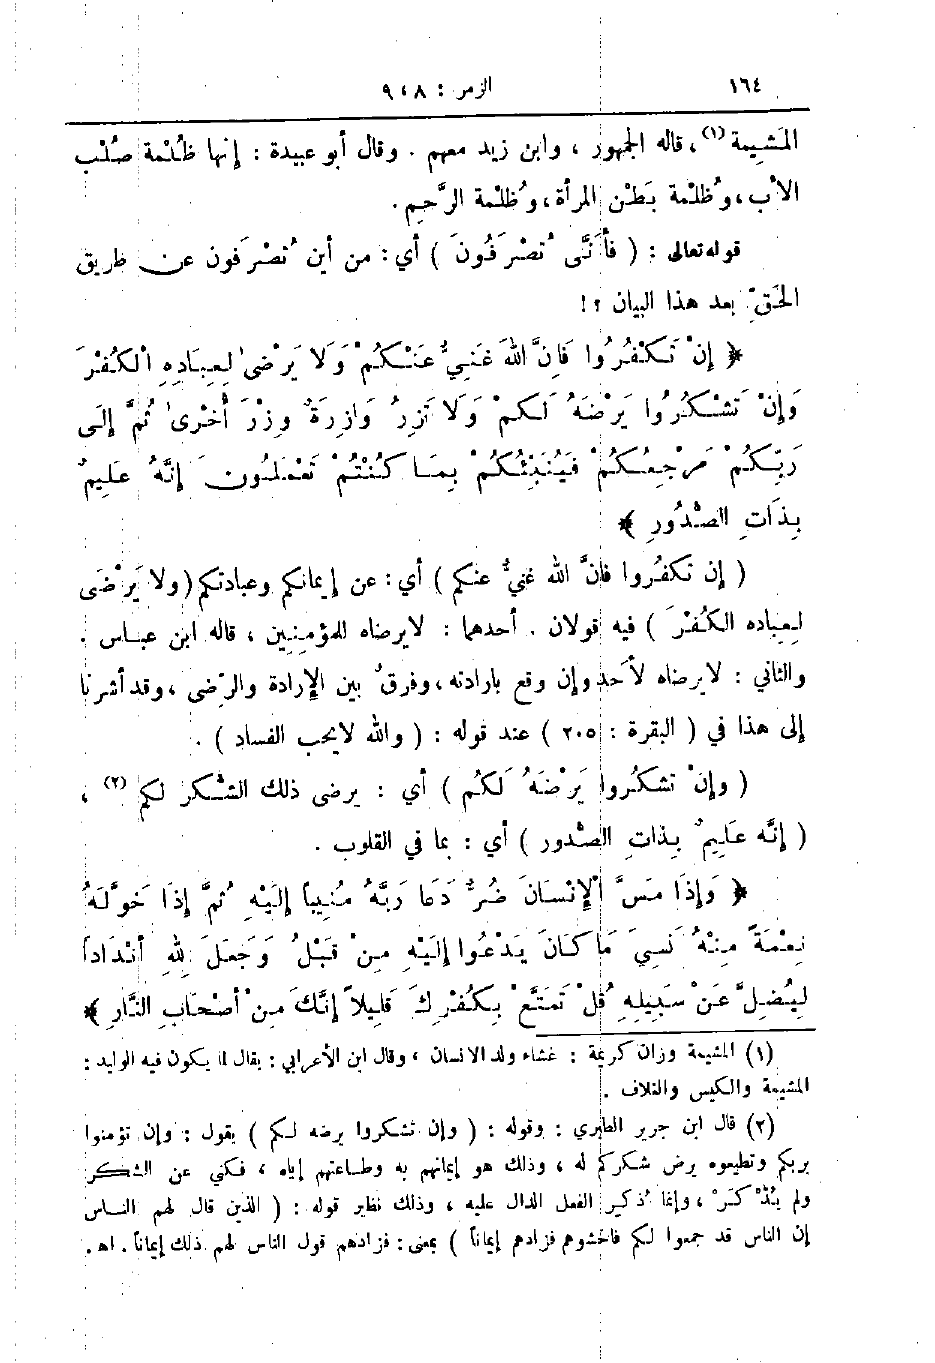 ١٦٤
الزمر : ٨ ، ٩
المَشِيمة (١) ، قاله الجمهور ، وابن زيد معهم . وقال أبو عبيدة : إنها ظُلْمة صُلْب
الأب ، وظُلْمة بَطْن المرأة ، وظُلْمة الرَّحِم .
قوله تعالى : ( فأَنَّى تُصْرَفُونَ ) أي : من أين تُصْرَفون عن طريق
الحَقِّ بعد هذا البيان ؟ !
﴿ إِنْ تَكْفُرُوا فَإِنَّ اللهَ غَنِيٌّ عَنْكُمْ وَلَا يَرْضىٰ لِعِبَادِهِ الْكُفْرَ
وَإِنْ تَشْكُرُوا يَرْضَهُ لَكُمْ وَلَا تَزِرُ وَازِرَةٌ وِزْرَ أُخْرىٰ ثُمَّ إِلَى
رَبِّكُمْ مَرْجِعُكُمْ فَيُنَبِّئُكُمْ بِمَا كُنْتُمْ تَعْمَلُونَ إِنَّهُ عَلِيمٌ
بِذَاتِ الصُّدُورِ ﴾
( إن تكفُروا فإنَّ الله غنيٌّ عنكم ) أي : عن إيمانكم وعبادتكم ( ولا يَرْضَى
لعِباده الكُفْرَ ) فيه قولان . أحدهما : لا يرضاه للمؤمِنِين ، قاله ابن عباس .
والثاني : لا يرضاه لأَحد وإن وقع بإرادته ، وفرقٌ بين الإرادة والرِّضى ، وقد أشرنا
إلى هذا في ( البقرة : ٢٠٥ ) عند قوله : ( والله لا يحب الفساد ) .
( وإنْ تشكُروا يَرْضَهُ لَكُم ) أي : يرضى ذلك الشُّكر لكم (٢) ،
( إنَّه عَلِيمٌ بِذاتِ الصُّدور ) أي : بما في القلوب .
﴿ وَإِذَا مَسَّ الْإِنْسَانَ ضُرٌّ دَعَا رَبَّهُ مُنِيباً إِلَيْهِ ثُمَّ إِذَا خَوَّلَهُ
نِعْمَةً مِنْهُ نَسِيَ مَا كَانَ يَدْعُوا إِلَيْهِ مِنْ قَبْلُ وَجَعَلَ لِلهِ أَنْدَاداً
لِيُضِلَّ عَنْ سَبِيلِهِ قُلْ تَمَتَّعْ بِكُفْرِكَ قَلِيلاً إِنَّكَ مِنْ أَصْحَابِ النَّارِ ﴾
(١) المشيمة وزان كريمة : غشاء ولد الانسان ، وقال ابن الأعرابي : يقال لما يكون فيه الوليد :
المشيمة والكيس والغلاف .
(٢) قال ابن جرير الطبري : وقوله : ( وإن تشكروا يرضه لكم ) يقول : وإن تؤمنوا
بربكم وتطيعوه يرض شكركم له ، وذلك هو إيمانهم به وطاعتهم إياه ، فكني عن الشكر
ولم يُذْكَرْ ، وإنما ذُكير الفعل الدال عليه ، وذلك نظير قوله : ( الذين قال لهم الناس
إن الناس قد جمعوا لكم فاخشوهم فزادهم إيماناً ) بمعنى : فزادهم قول الناس لهم ذلك إيماناً . اهـ .